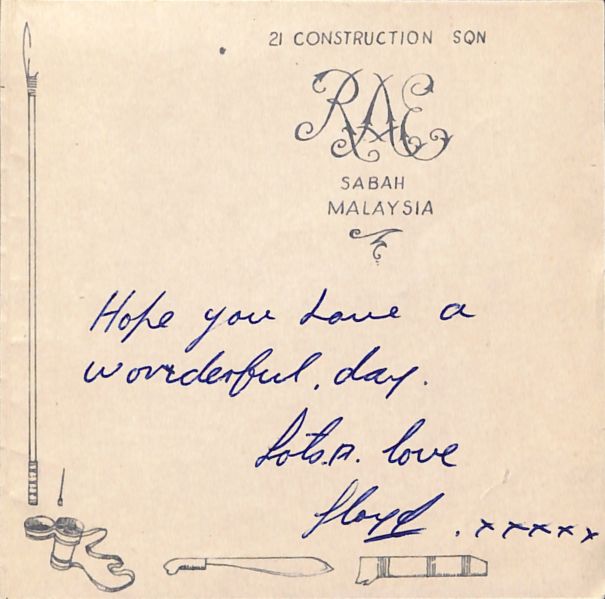 21 CONSTRUCTION SQN
RAE
SABAH
MALAYSIA
Hope you have a
wonderful, day.
Lots.a. love
Floyd. xxxxx